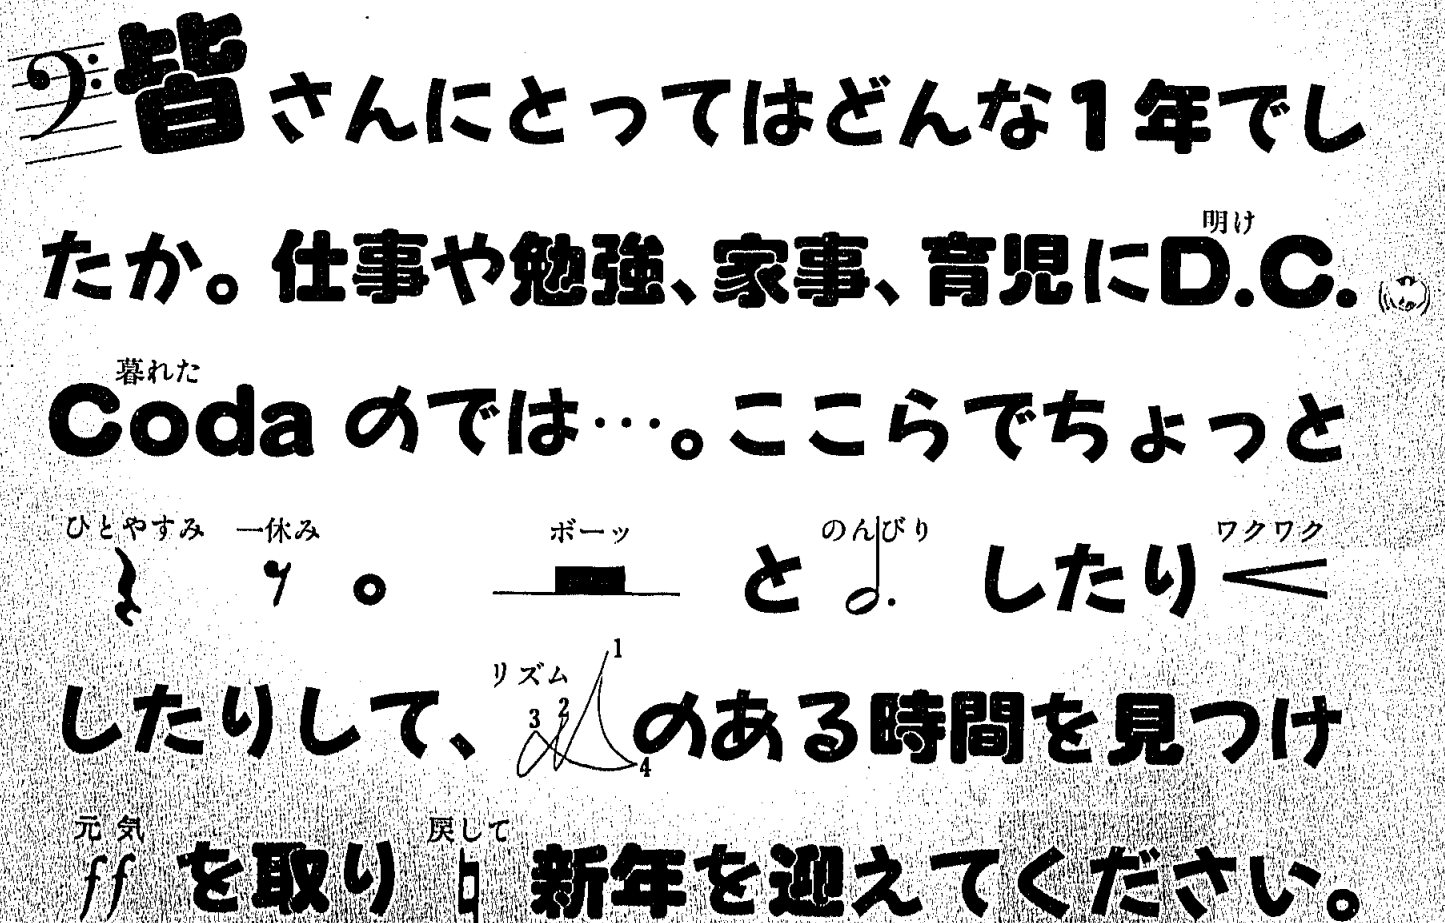 皆さんにとってはどんな1年でし
明け
たか。仕事や勉強、家事、育児にD.C.
暮れた
Coda のでは…。ここらでちょっと
ひとやすみ 一休み ボーッ のんびり ワクワク
。 と したり
リズム 1 2 3 4
したりして、のある時間を見つけ
元気 戻して
ff を取り 新年を迎えてください。